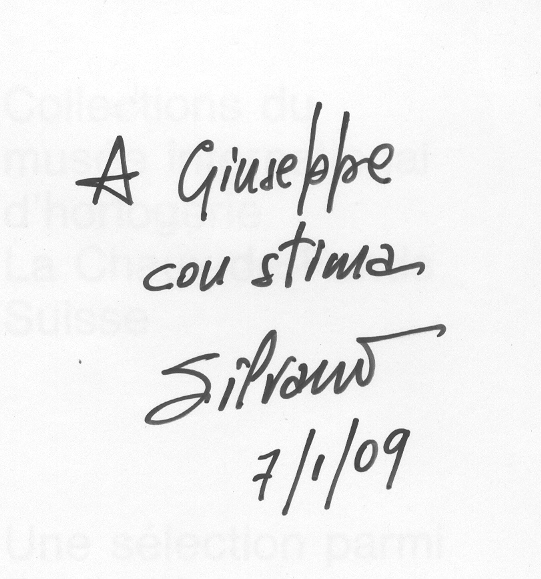 Collections du
musée international
d'horlogerie
La Chaux-de-Fonds
Suisse
A Giuseppe
con stima
Silvano
7/1/09
Une sélection parmi